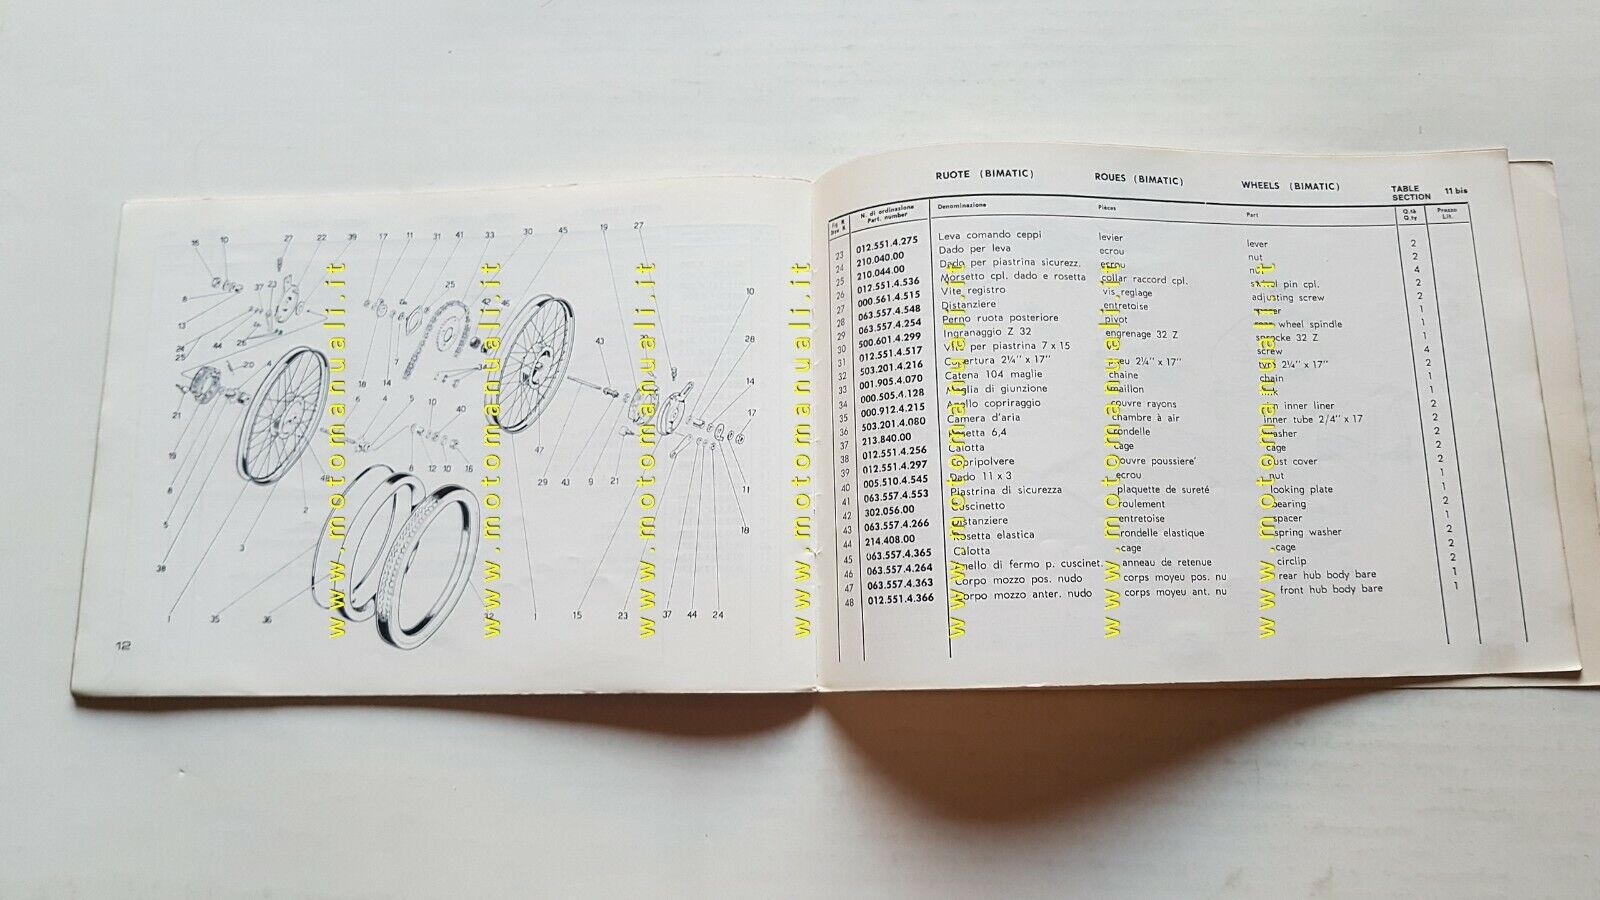 RUOTE (BIMATIC) ROUES (BIMATIC) WHEELS (BIMATIC) TABLE SECTION 11 bis
Fig. N. Draw N. N. di ordinazione Part. number Denominazione Pièces Part Q.tà Q.ty Prezzo Lit.
23 012.551.4.275 Leva comando ceppi levier lever 2
24 210.040.00 Dado per leva ecrou nut 2
25 210.044.00 Dado per piastrina sicurezz. ecrou 4
26 012.551.4.536 Morsetto cpl. dado e rosetta collar raccord cpl. pin cpl. 2
27 000.561.4.515 Vite registro vis reglage adjusting screw 2
28 063.557.4.548 Distanziere entretoise 1
29 063.557.4.254 Perno ruota posteriore pivot rear wheel spindle 1
30 500.601.4.299 Ingranaggio Z 32 engrenage 32 Z sprocke 32 Z 1
31 012.551.4.517 Vite per piastrina 7 x 15 screw 4
32 503.201.4.216 Copertura 2¼" x 17" pneu 2¼" x 17" tyre 2¼" x 17" 2
33 001.905.4.070 Catena 104 maglie chaine chain 1
34 000.505.4.128 Maglia di giunzione maillon 1
35 000.912.4.215 Anello copriraggio couvre rayons inner liner 2
36 503.201.4.080 Camera d'aria chambre à air inner tube 2/4" x 17 2
37 213.840.00 Rosetta 6,4 rondelle washer 2
38 012.551.4.256 Calotta cage cage 2
39 012.551.4.297 Copripolvere couvre poussiere' dust cover 2
40 005.510.4.545 Dado 11 x 3 ecrou nut 1
41 063.557.4.553 Piastrina di sicurezza plaquette de sureté looking plate 1
42 302.056.00 Cuscinetto roulement bearing 2
43 063.557.4.266 Distanziere entretoise spacer 1
44 214.408.00 Rosetta elastica rondelle elastique spring washer 2
45 063.557.4.365 Calotta cage cage 2
46 063.557.4.264 Anello di fermo p. cuscinet. anneau de retenue circlip 2
47 063.557.4.363 Corpo mozzo pos. nudo corps moyeu pos. nu rear hub body bare 1
48 012.551.4.366 Corpo mozzo anter. nudo corps moyeu ant. nu front hub body bare 1
16 10 27 22 39 17 11 31 41 33 30 45 19 27
37 23 8 13 24 25 44 26
25 42 46 43 10 28 14 17
20 4 21 19 8 5 38
7 14 18 6 4 5 10 40
48 2 3 6 12 10 16
47 29 43 9 21 11 18
1 35 36 32 1 15 23 37 44 18 24
12
www.motomanuali.it
www.motomanuali.it
www.motomanuali.it
www.motomanuali.it
www.motomanuali.it
www.motomanuali.it
www.motomanuali.it